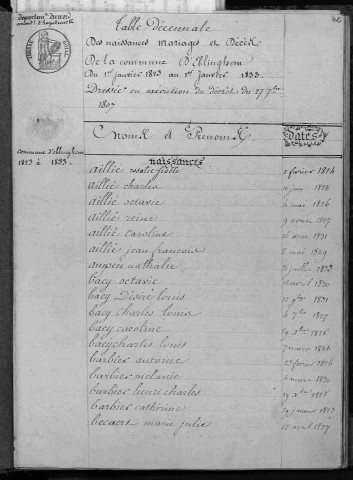 departem. du nord
arrond. d'hazebrouck
42
Table décennale
Des naissances mariages et Décès
De la commune D'Eblinghem
Du 1er janvier 1823 au 1er janvier 1833.
Dressée en exécution du décret du 27 7bre
1807
Noms et Prénoms
dates
commune d'Eblinghem
1823 à 1833.
naissances
aillié rosalie fidèle 2 février 1824
aillié charles juin 1824
aillié octavie mai 1826
aillié reine 9 1827
aillié caroline 1831
aillié jean francois 2 mai 1829
ampen nathalie juillet 1823
bacy octavie avril 1830
bacy Désiré Louis 9bre 1831
bacy charles Louis 6 7bre 1827
bacy caroline 29 1826
bacy charles louis 7 mars 1824
barbier antoine 23 février 1826
barbier mélanie 6 mars 1830
barbier henri charles 29 1825
barbier catherine 29 mars 1823
becaert marie julie avril 1827